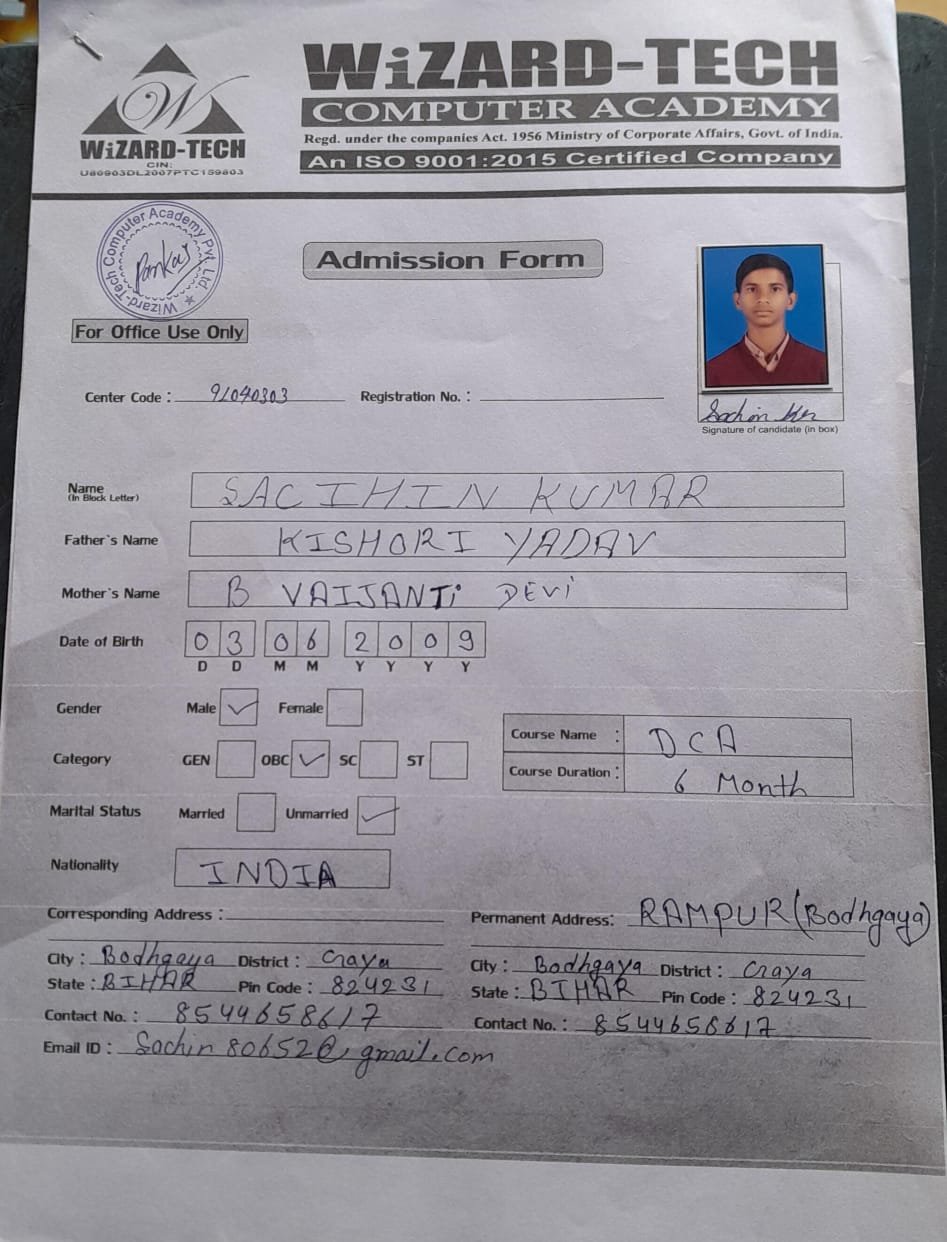 WiZARD-TECH
COMPUTER ACADEMY
Regd. under the companies Act. 1956 Ministry of Corporate Affairs, Govt. of India.
An ISO 9001:2015 Certified Company
W
WiZARD-TECH
CIN:
U80903DL2007PTC159803
Wizard-Tech Computer Academy Pvt. Ltd.
Pankaj
Admission Form
For Office Use Only
Center Code : 91040303 Registration No. :
Sachin
Signature of candidate (in box)
Name SACIHIN KUMAR
(In Block Letter)
Father's Name KISHORI YADAV
Mother's Name B VAIJANTi DEVi
Date of Birth 03 06 2009
D D M M Y Y Y Y
Gender Male ✓ Female
Category GEN OBC ✓ SC ST
Course Name : DCA
Course Duration : 6 Month
Marital Status Married Unmarried ✓
Nationality INDIA
Corresponding Address :
City : Bodhgaya District : Gaya
State : BIHAR Pin Code : 824231
Contact No. : 8544658617
Email ID : Sachin80652@gmail.com
Permanent Address: RAMPUR(Bodhgaya)
City : Bodhgaya District : Gaya
State : BIHAR Pin Code : 824231
Contact No. : 8544658617